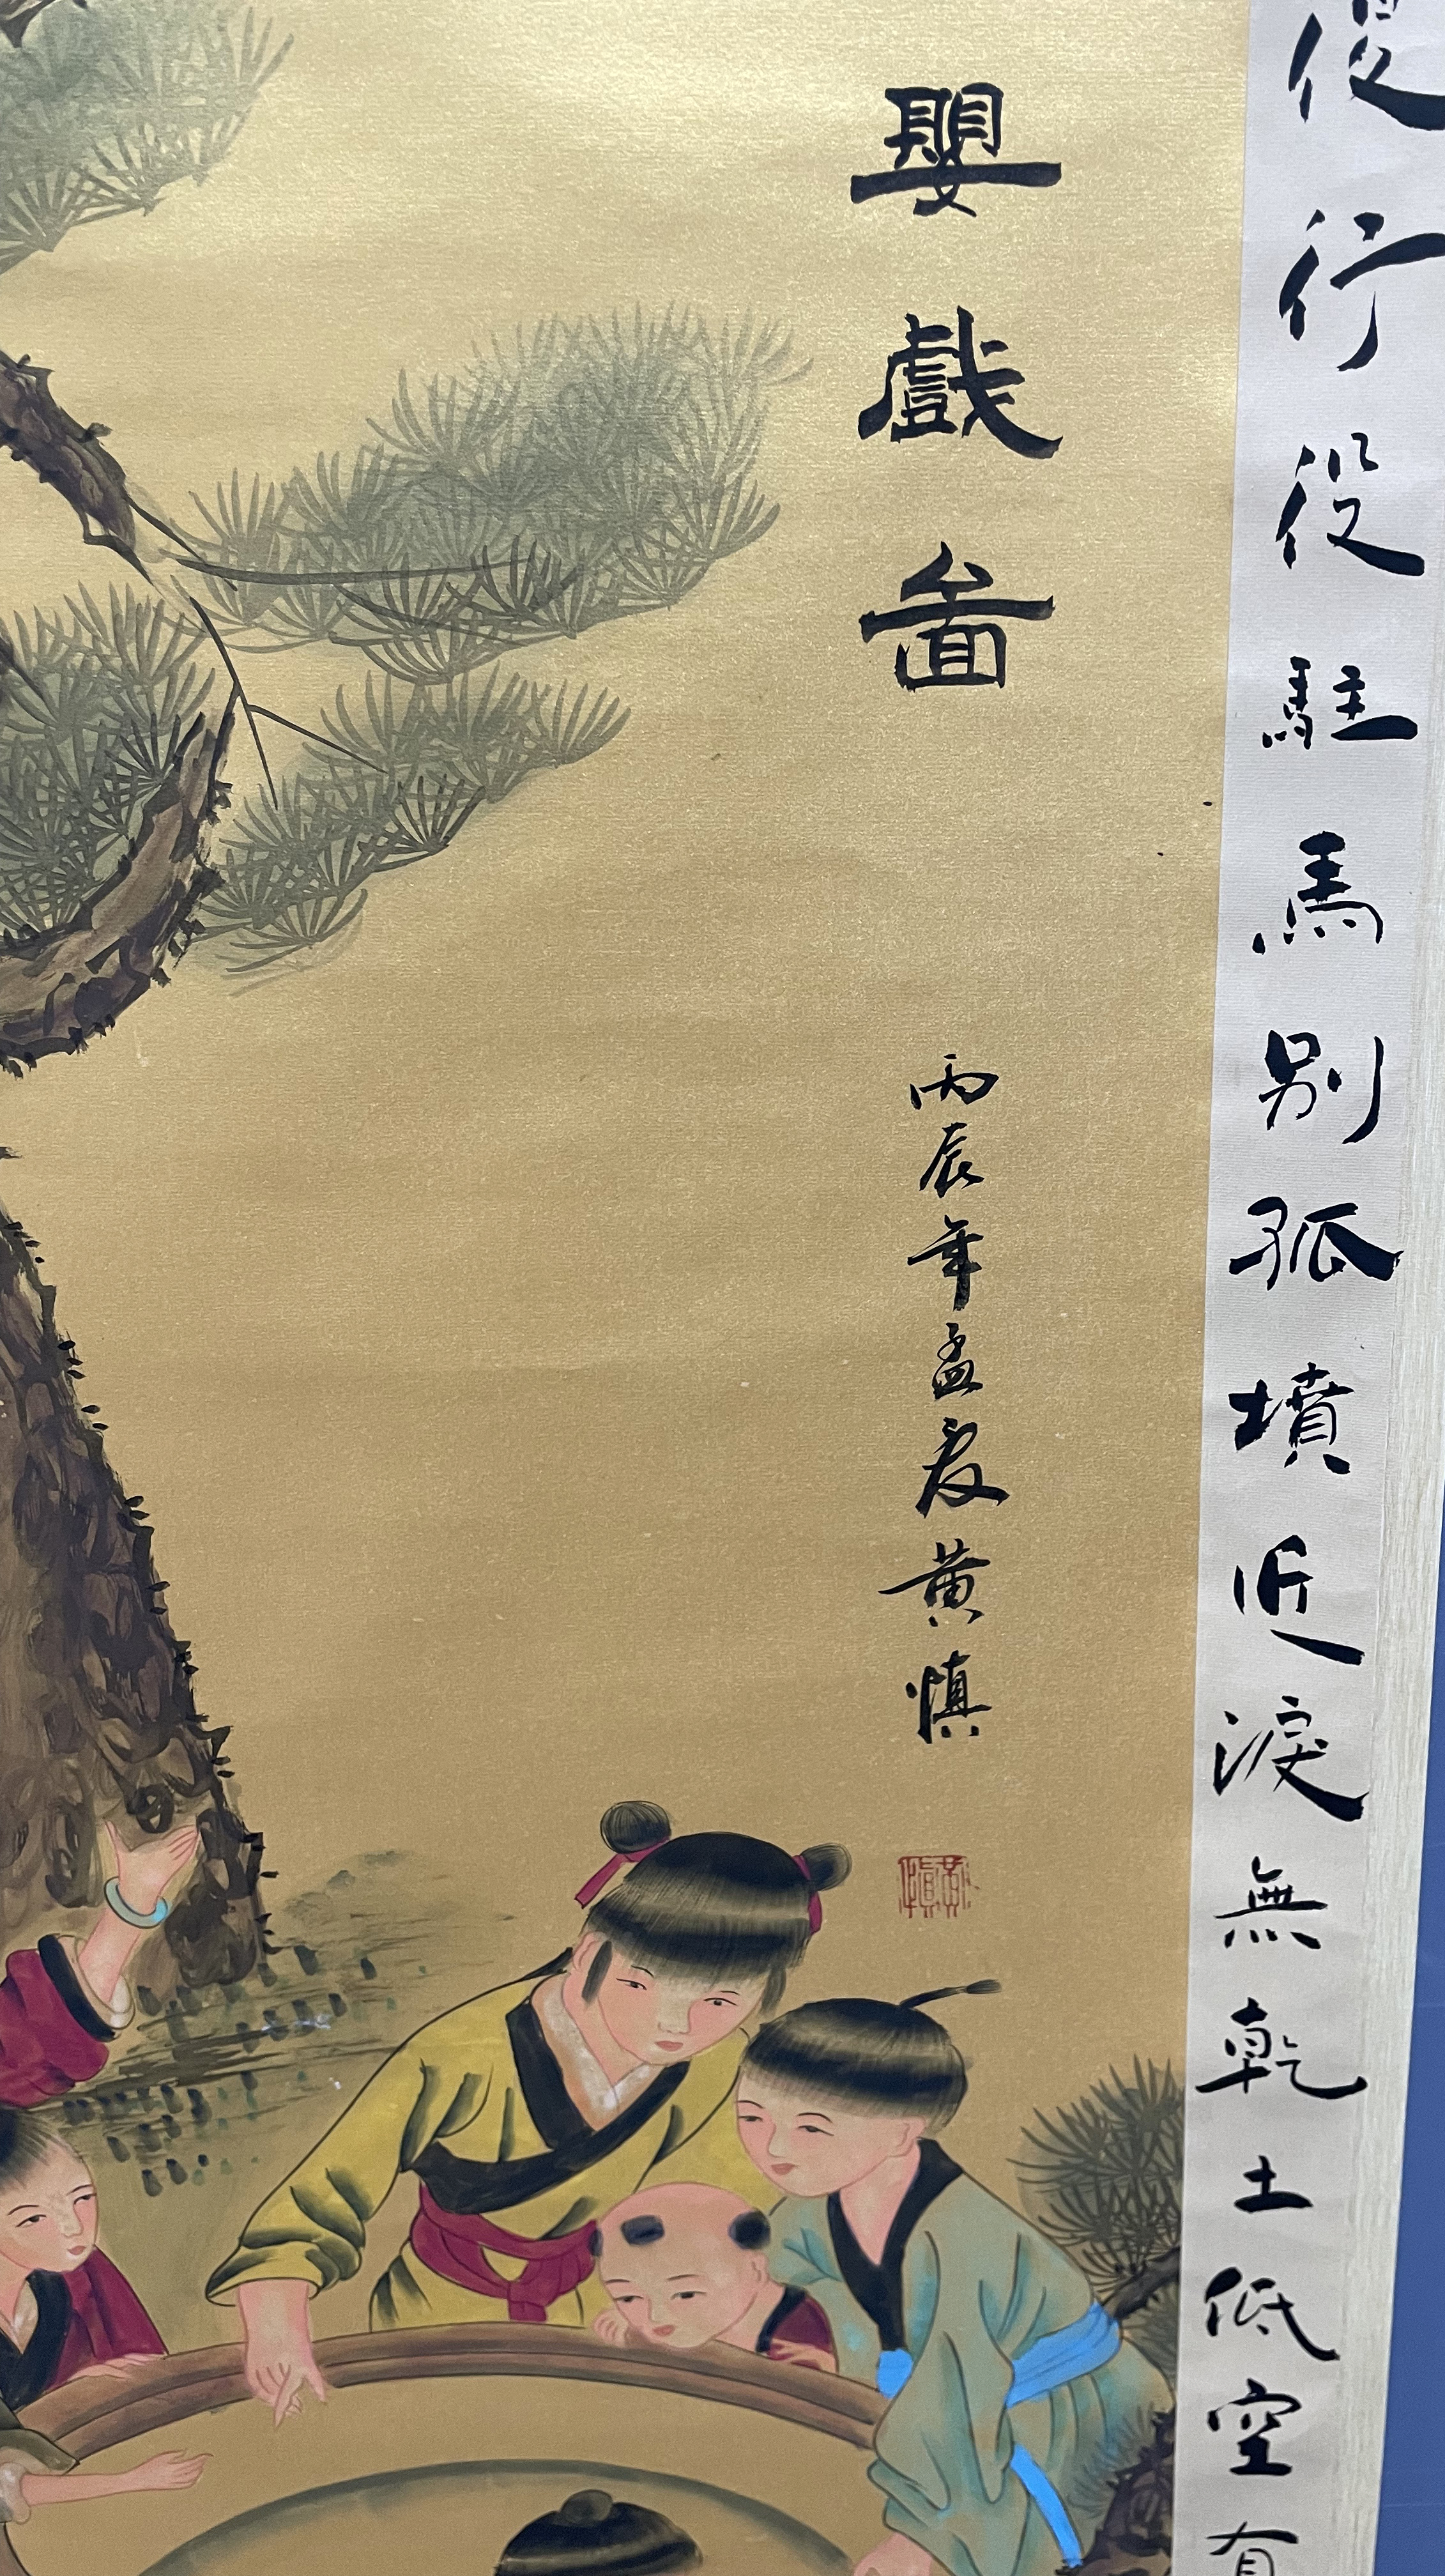 復行役駐馬別孤墳近淚無乾土低空有
嬰戲啚
丙辰年孟夏黃慎
黃慎